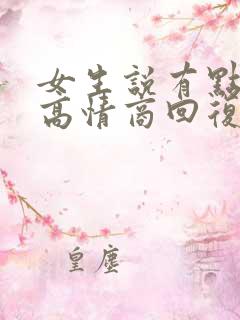 女生說有點
高情商回復
皇塵